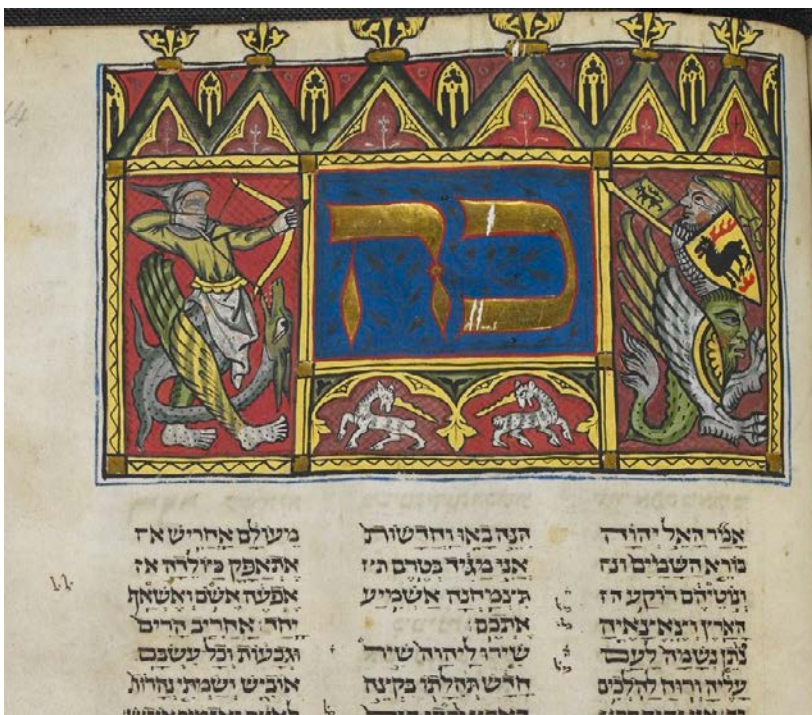 כה
אמר האל יהוה
בורא השמים
ונוטיהם רוקע
הארץ וצאצאיה
נתן נשמה לעם
עליה ורוח להלכים
הנה באו וחדשות
אני מגיד בטרם
תצמחנה אשמיע
אתכם
שירו ליהוה שיר
חדש תהלתו מקצה
מעולם אחריש
אתאפק כיולדה
אפעה אשם ואשאף
יחד אחריב הרים
וגבעות וכל עשבם
אוביש ושמתי נהרות